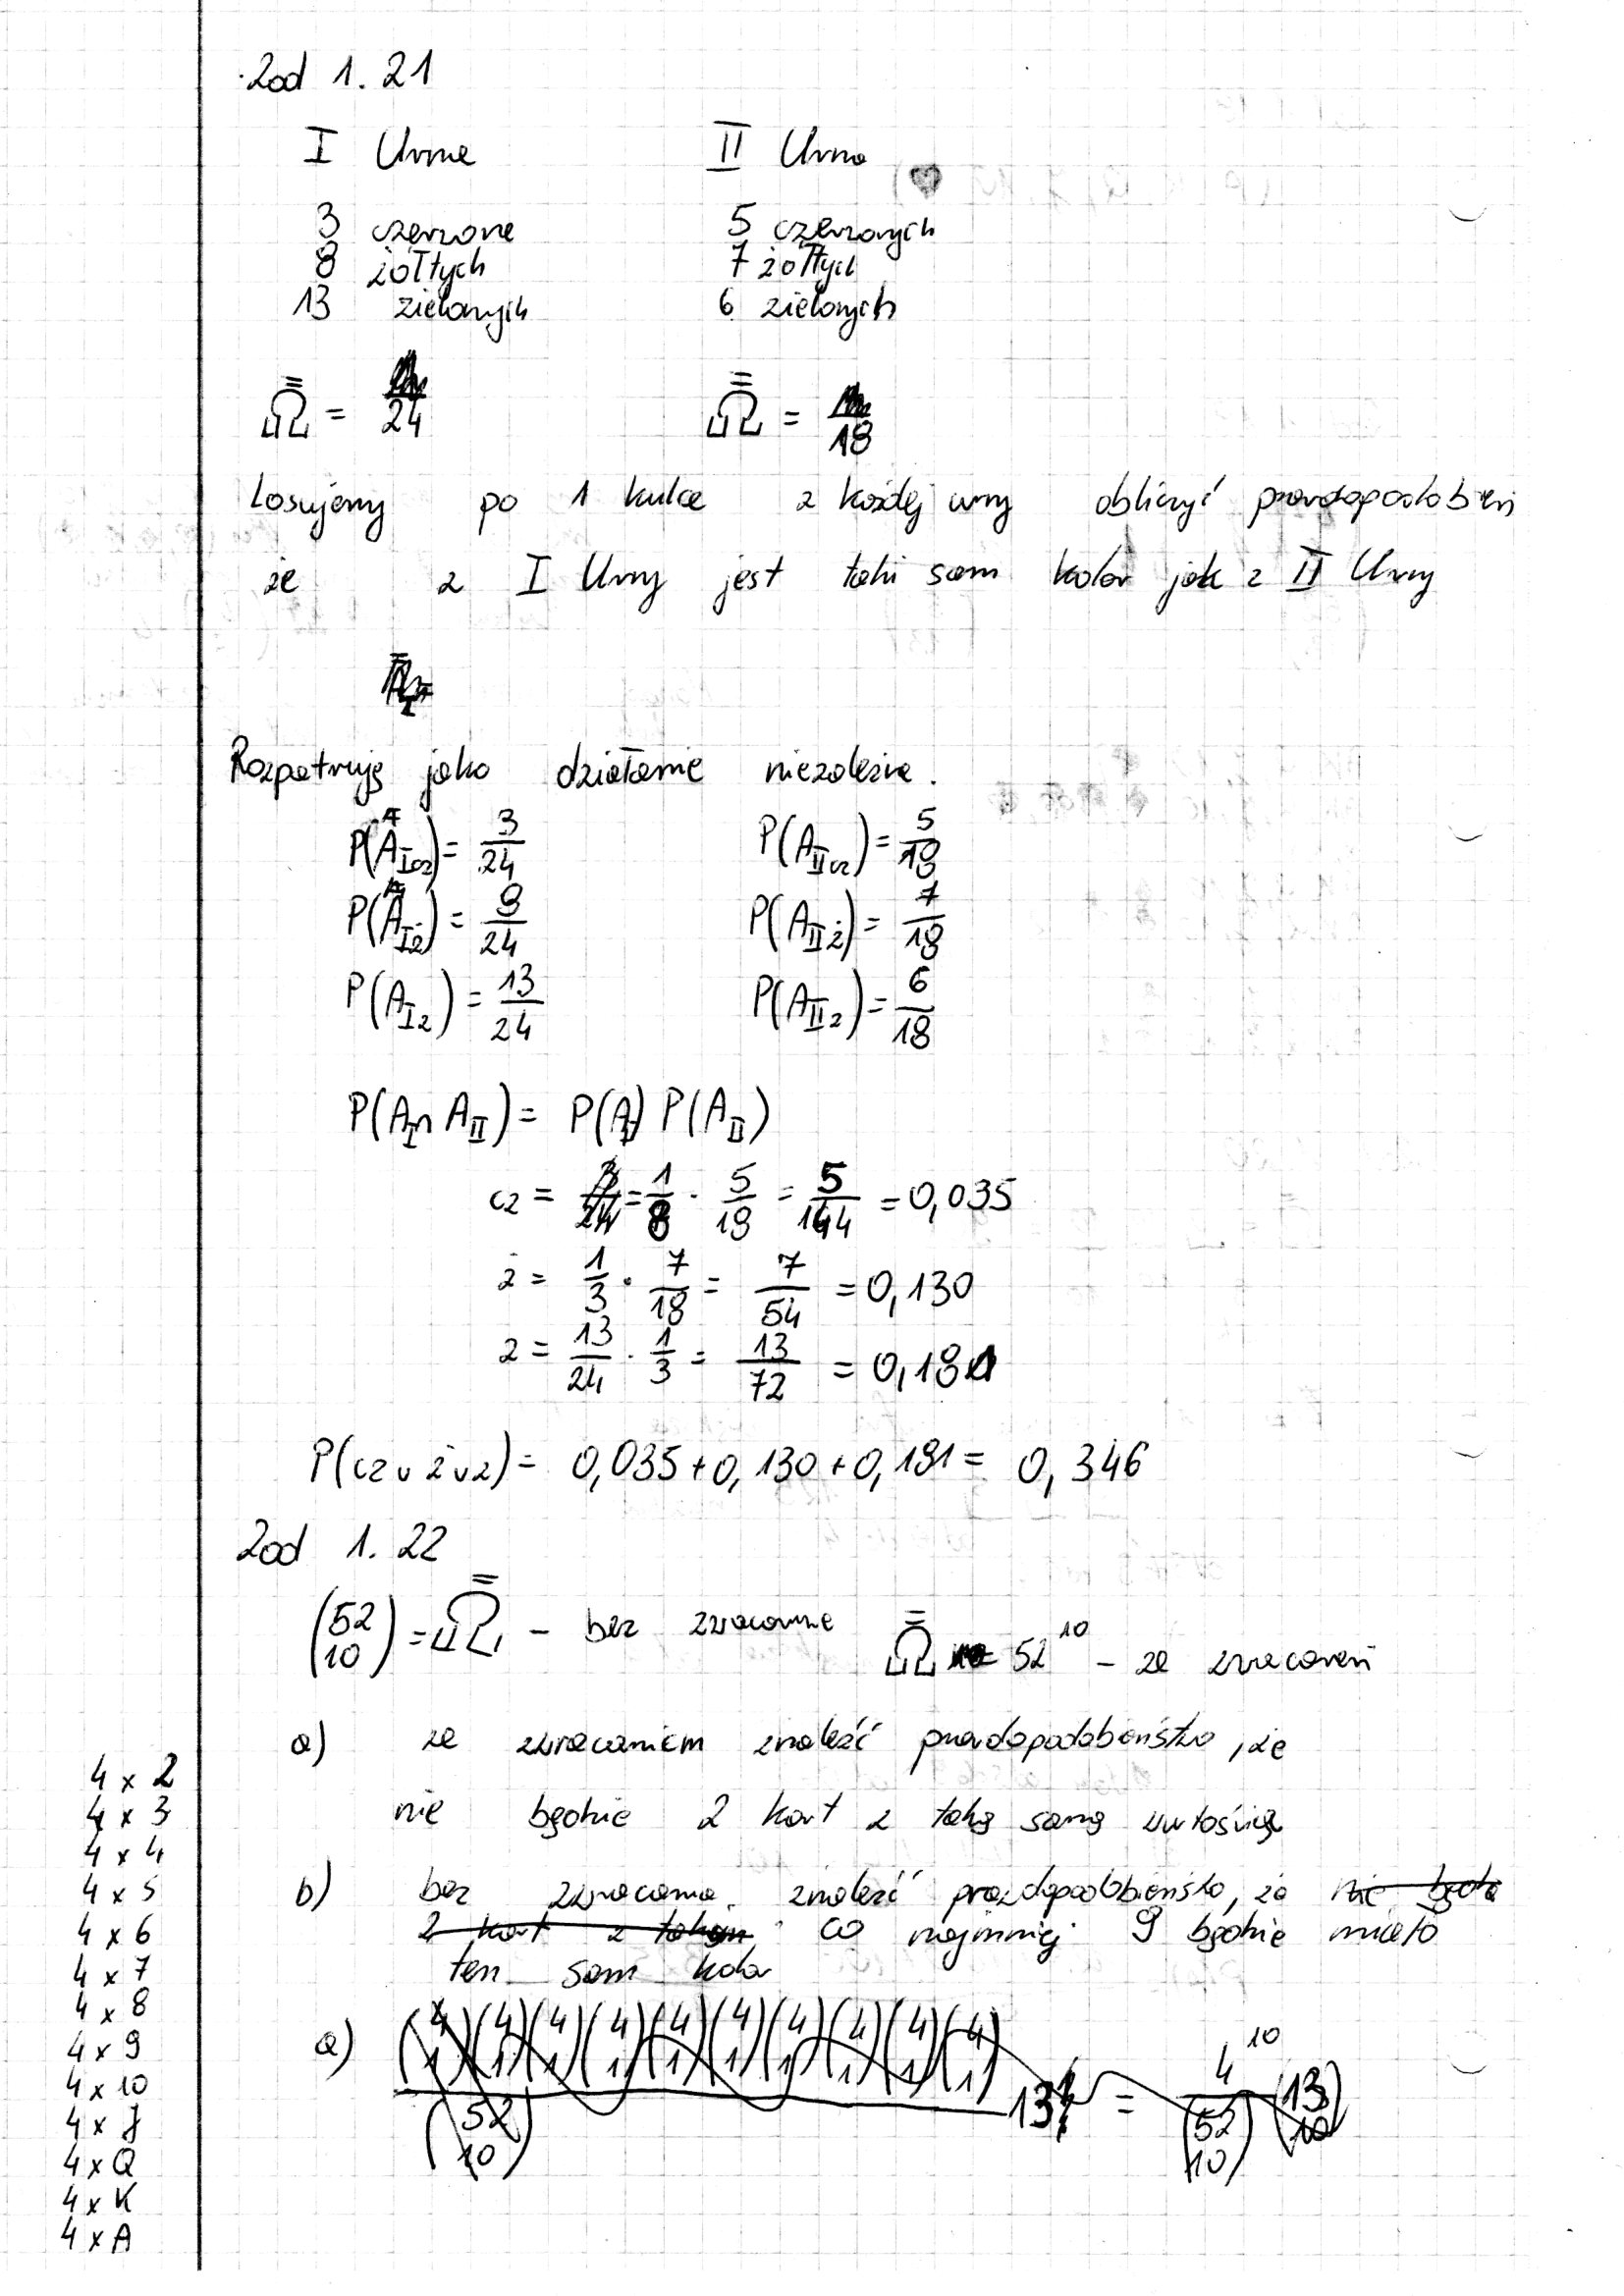 Zad 1.21
I Urna II Urna
3 czerwone 5 czerwonych
8 żółtych 7 żółtych
13 zielonych 6 zielonych
Ω̿ = 24 Ω̿ = 18
Losujemy po 1 kulce z każdej urny obliczyć prawdopodobień
że z I Urny jest taki sam kolor jak z II Urny
Rozpatruję jako działanie niezależne.
P(A_Icz) = 3/24 P(A_IIcz) = 5/18
P(A_Iż) = 8/24 P(A_IIż) = 7/18
P(A_Iz) = 13/24 P(A_IIz) = 6/18
P(A_I ∩ A_II) = P(A_I) P(A_II)
cz = 3/24 = 1/8 · 5/18 = 5/144 = 0,035
ż = 1/3 · 7/18 = 7/54 = 0,130
z = 13/24 · 1/3 = 13/72 = 0,181
P(cz ∪ ż ∪ z) = 0,035 + 0,130 + 0,181 = 0,346
Zad 1.22
(52 10) = Ω̿ - bez zwracanie Ω̿ = 52^10 - ze zwracaniem
a) ze zwracaniem znaleźć prawdopodobieństwo, że
nie będzie 2 kart z taką samą wartością
b) bez zwracania znaleźć prawdopodobieństwo, że nie będzie
2 kart z takim co najmniej 9 będzie miało
ten sam kolor
a) (4 1)(4 1)(4 1)(4 1)(4 1)(4 1)(4 1)(4 1)(4 1)(4 1) / (52 10) 13! = 4^10 / (52 10) (13 10)
4 x 2
4 x 3
4 x 4
4 x 5
4 x 6
4 x 7
4 x 8
4 x 9
4 x 10
4 x J
4 x Q
4 x K
4 x A